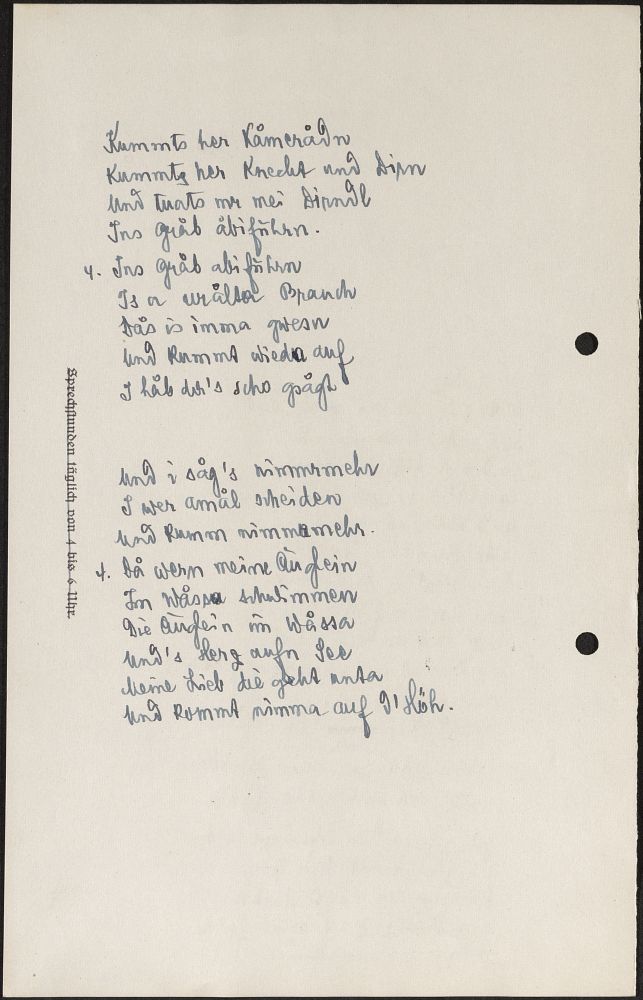 Kummts her Kåmerådn
Kummts her Knecht und Dirn
Und tuats mr mei Dirndl
Ins Gråb åbiführn.
4. Ins Gråb abiführn
Is a urålter Brauch
Dås is imma gwesn
Und kummt wieda auf
I håb dir's scho gsågt
Und i såg's nimmermehr
I wer amål scheiden
Und kumm nimmamehr.
4. Då wern meine Äuglein
Im Wåssa schwimmen
Die Äuglein im Wåssa
Und's Herz aufn See
Meine Lieb die geht unta
Und kommt nimma auf d'Höh.
Sprechstunden täglich von 4 bis 6 Uhr.